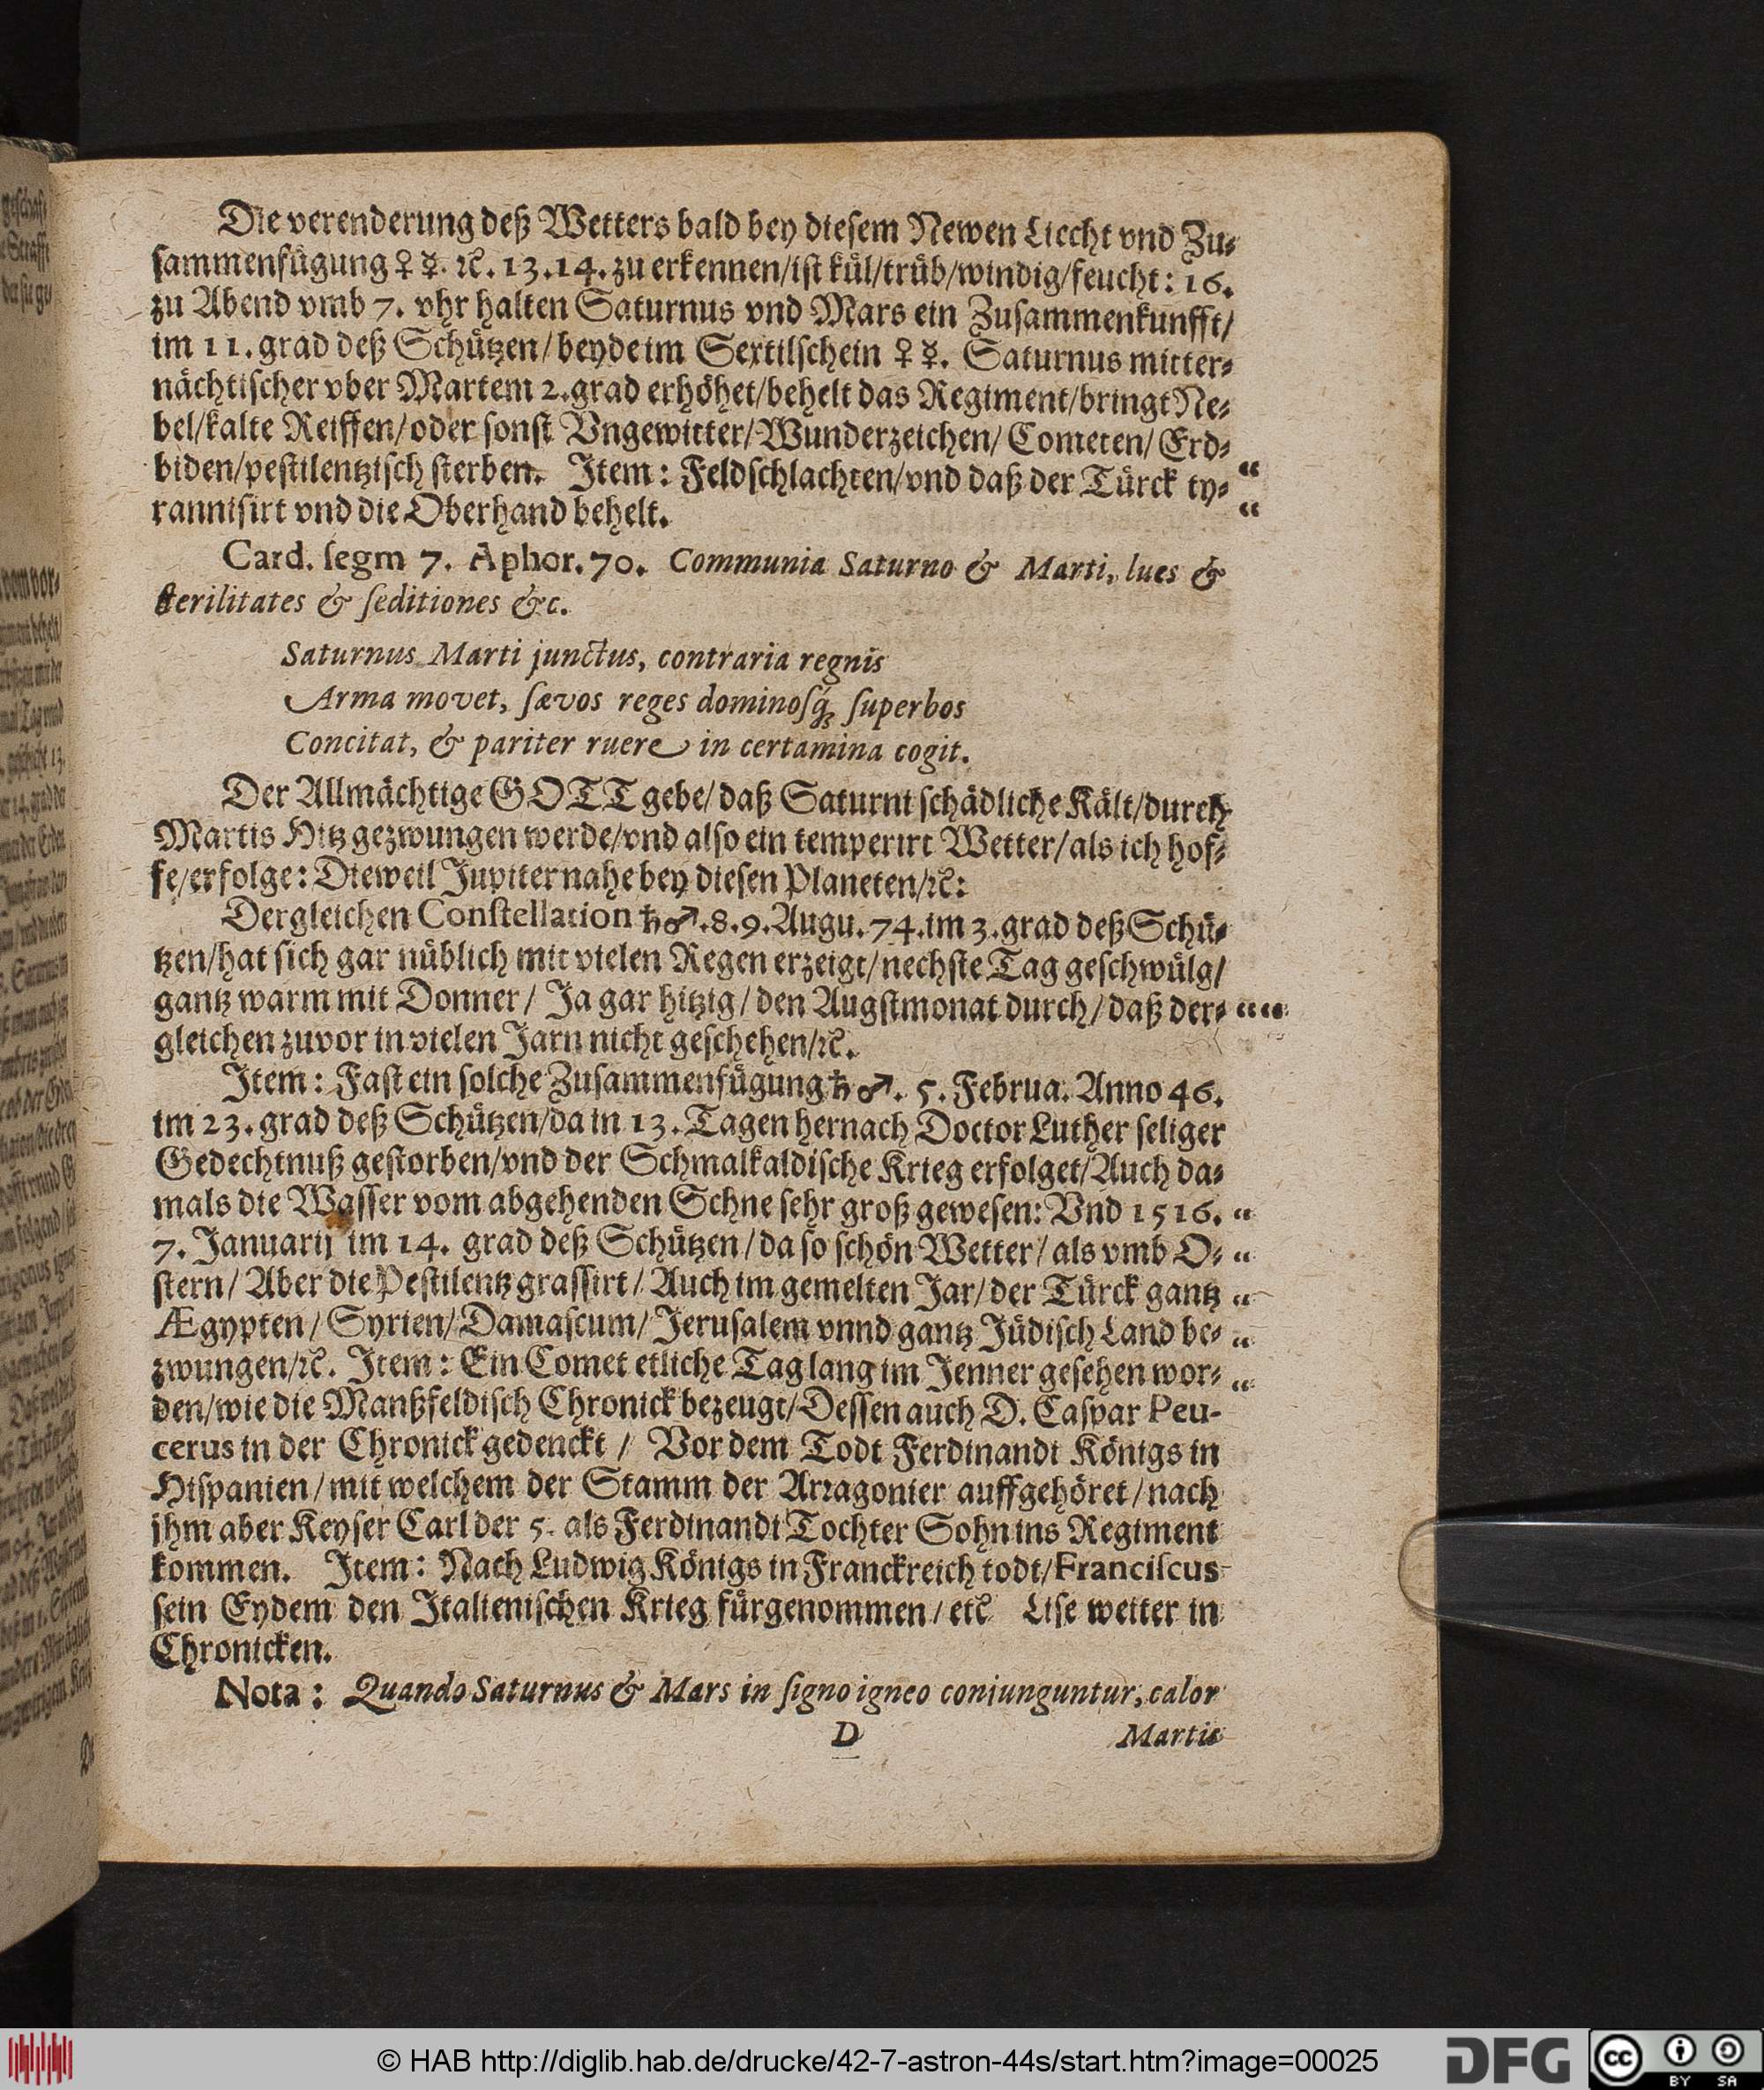 Die verenderung deß Wetters bald bey diesem Newen Liecht vnd Zu⸗
sammenfügung ♀ ☿. ꝛc. 13.14. zu erkennen/ist kül/trüb/windig/feucht: 16.
zu Abend vmb 7. vhr halten Saturnus vnd Mars ein Zusammenkunfft/
im 11. grad deß Schützen/beyde im Sextilschein ♀ ☿. Saturnus mitter⸗
nächtischer vber Martem 2. grad erhöhet/behelt das Regiment/bringt Ne⸗
bel/kalte Reiffen/oder sonst Vngewitter/Wunderzeichen/Cometen/Erd⸗
biden/pestilentzisch sterben. Item: Feldschlachten/vnd daß der Türck ty⸗ “
rannisirt vnd die Oberhand behelt. “
Card. ſegm 7. Aphor. 70. Communia Saturno & Marti, lues &
ſterilitates & ſeditiones &c.
Saturnus Marti junctus, contraria regnis
Arma movet, ſævos reges dominoſq́ꝫ ſuperbos
Concitat, & pariter ruere in certamina cogit.
Der Allmächtige GOTT gebe/daß Saturni schädliche Kält/durch
Martis Hitz gezwungen werde/vnd also ein temperirt Wetter/als ich hof⸗
fe/erfolge: Dieweil Jupiter nahe bey diesen Planeten/ꝛc:
Dergleichen Conſtellation ♄ ♂. 8. 9. Augu. 74. im 3. grad deß Schü⸗
tzen/hat sich gar nüblich mit vielen Regen erzeigt/nechste Tag geschwülg/
gantz warm mit Donner/ Ja gar hitzig/den Augstmonat durch/daß der⸗ ““
gleichen zuvor in vielen Jarn nicht geschehen/ꝛc.
Item: Fast ein solche Zusammenfügung ♄ ♂. 5. Februa. Anno 46.
im 23. grad deß Schützen/da in 13. Tagen hernach Doctor Luther seliger
Gedechtnuß gestorben/vnd der Schmalkaldische Krieg erfolget/Auch da⸗
mals die Wasser vom abgehenden Schne sehr groß gewesen: Vnd 1516. “
7. Januarij im 14. grad deß Schützen/da so schön Wetter/als vmb O⸗ “
stern/Aber die Pestilentz grassirt/Auch im gemelten Jar/der Türck gantz “
Ægypten/Syrien/Damascum/Jerusalem vnnd gantz Jüdisch Land be⸗ “
zwungen/ꝛc. Item: Ein Comet etliche Tag lang im Jenner gesehen wor⸗ “
den/wie die Manßfeldisch Chronick bezeugt/Dessen auch D. Caspar Peu-
cerus in der Chronick gedenckt / Vor dem Todt Ferdinandi Königs in
Hispanien/mit welchem der Stamm der Arragonier auffgehöret/nach
jhm aber Keyser Carl der 5. als Ferdinandi Tochter Sohn ins Regiment
kommen. Item: Nach Ludwig Königs in Franckreich todt/Franciſcus
sein Eydem den Italienischen Krieg fürgenommen/etc Lise weiter in
Chronicken.
Nota: Quando Saturnus & Mars in ſigno igneo coniunguntur, calor
D Martis
© HAB http://diglib.hab.de/drucke/42-7-astron-44s/start.htm?image=00025
DFG
cc BY SA